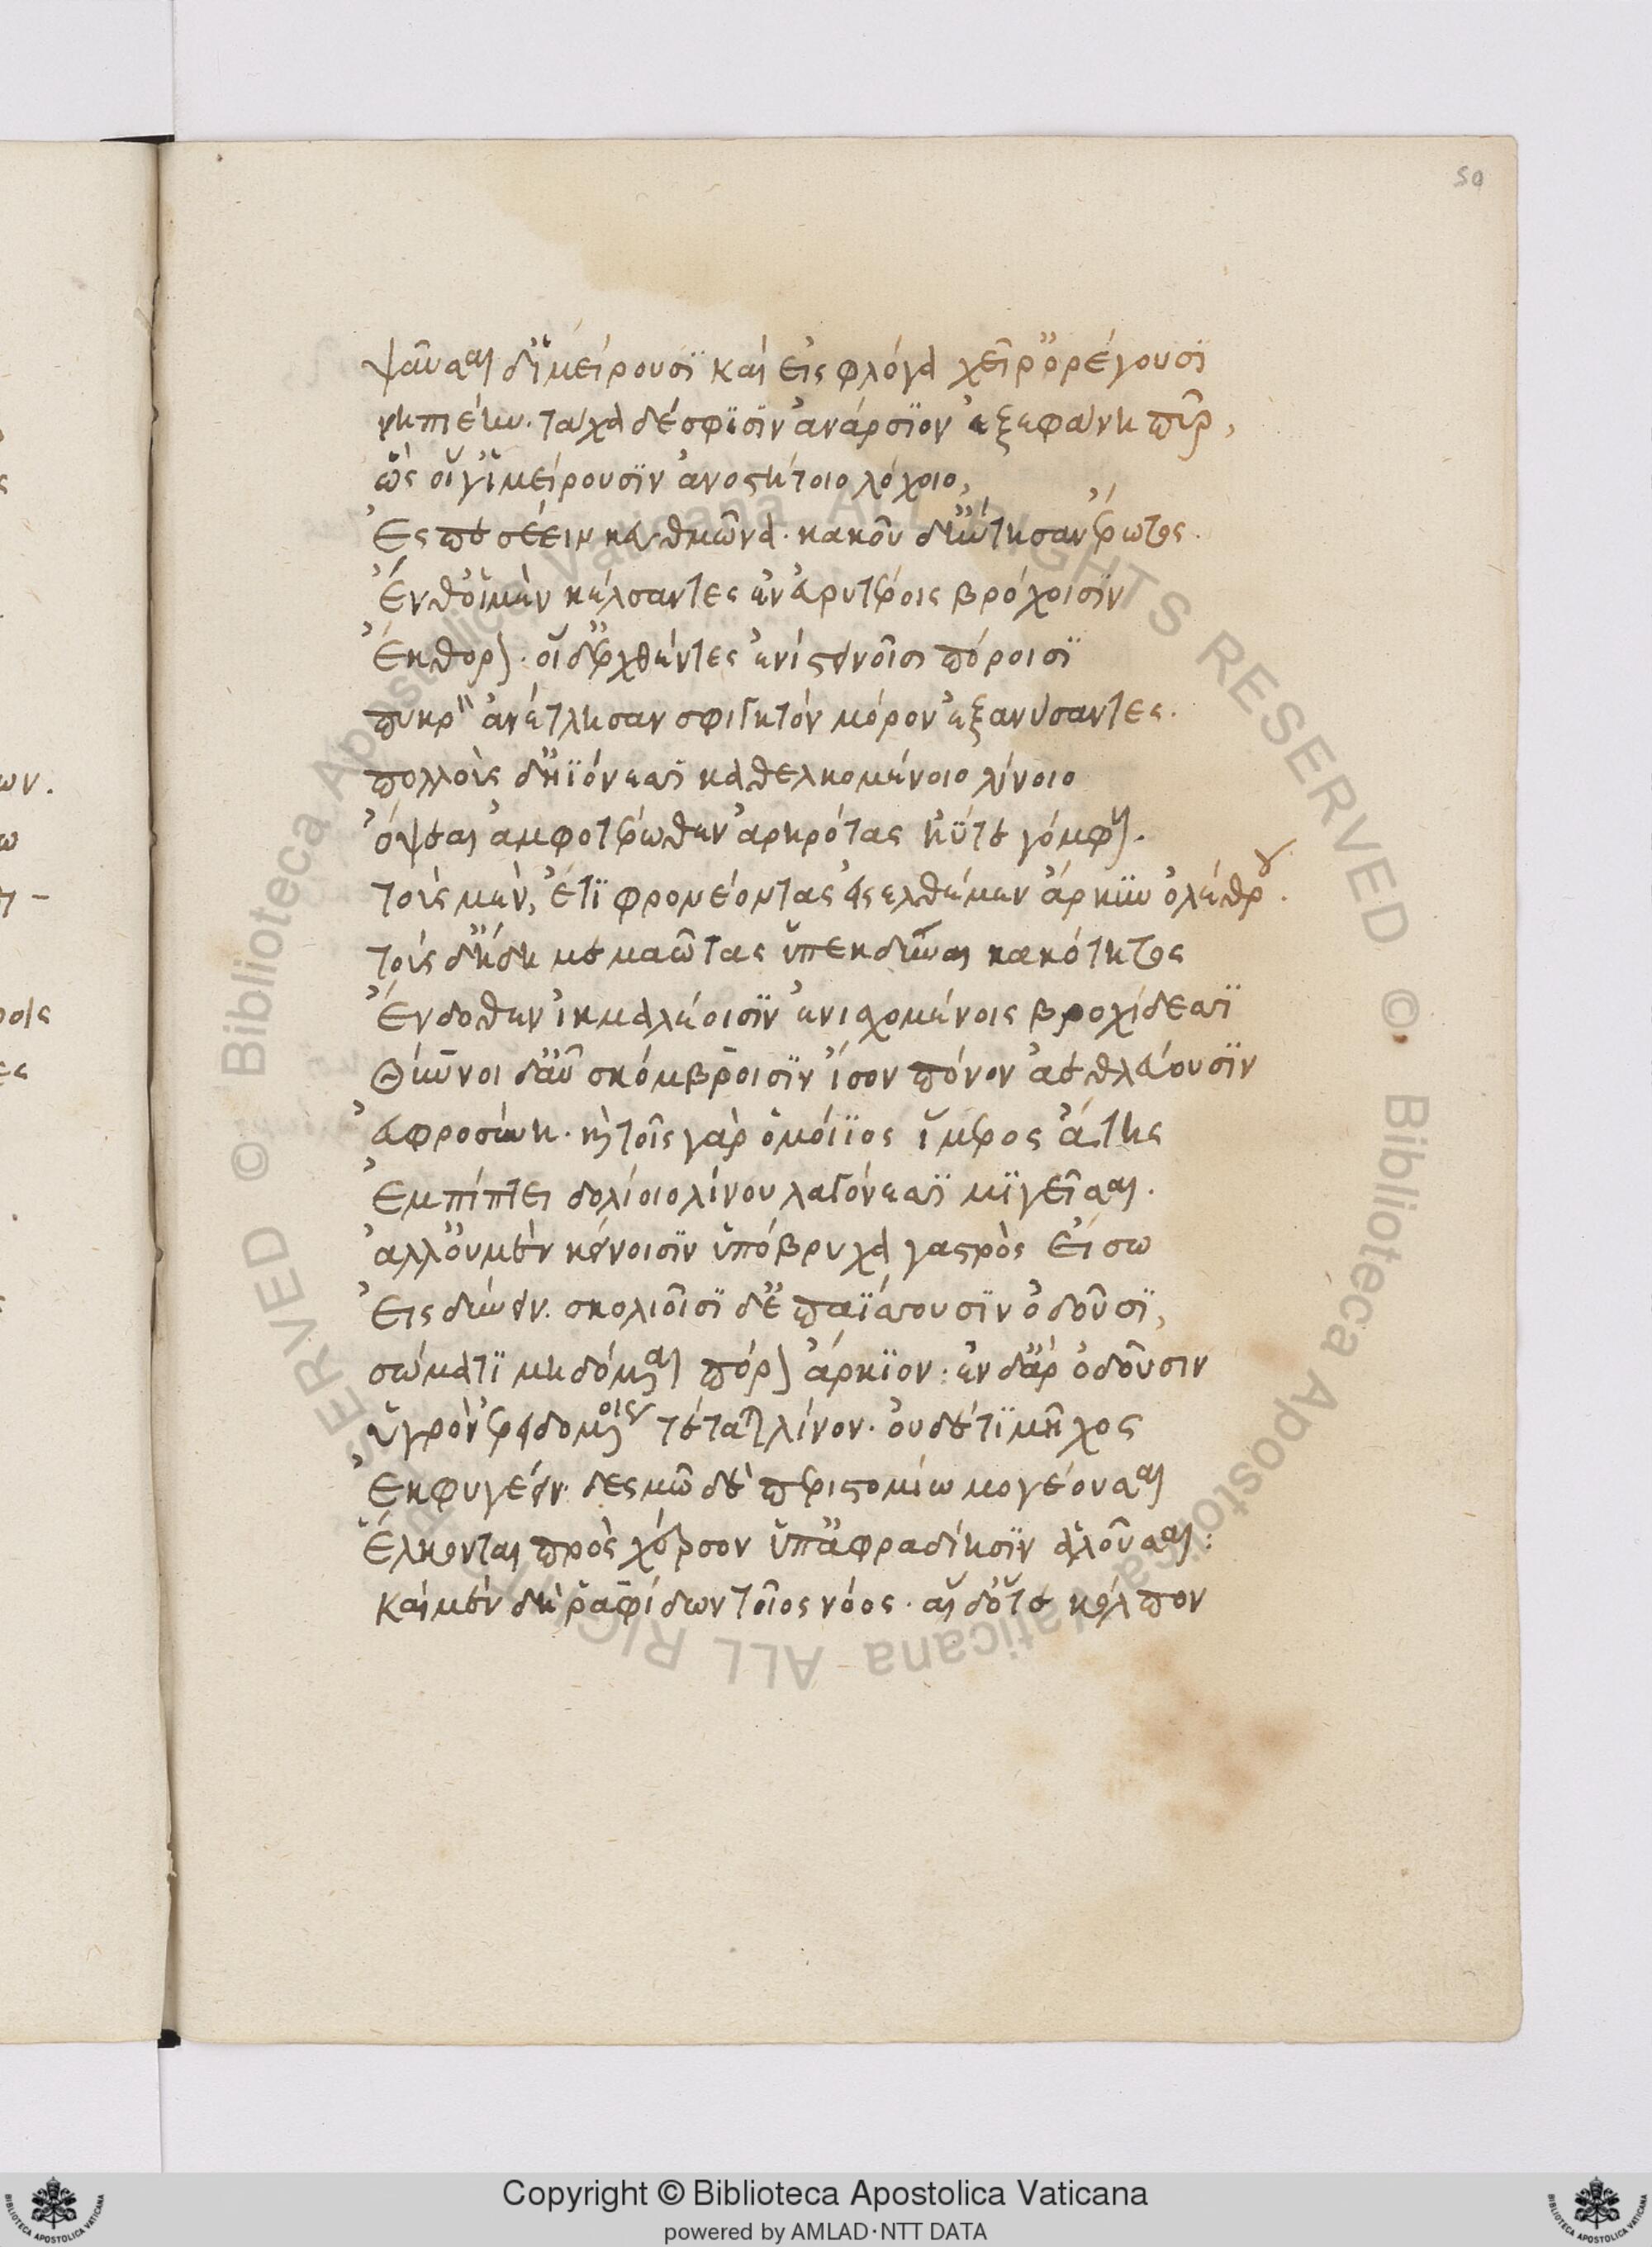 50
ψαῦσαι δ' ἱμείρουσϊ καὶ εἰς φλόγα χεῖρ' ὀρέγουσϊ
νηπιέην. τάχα δέ σφϊσϊν ἀνάρσϊον ἐξεφάνη πῦρ,
ὣς οἵγ' ἱμείρουσϊν ἀνοστήτοιο λόχοιο,
Ἐς πεσέειν κευθμῶνα. κακοῦ δ' ἤντησαν ἔρωτος.
Ἔνθ' οἱ μὲν κέλσαντες ἐν εὐρυτέροις βρόχοισϊν
Ἔκθορον. οἱ δ' ἐρχθέντες ἐνὶ στεινοῖσι πόροισϊ
πικρὸν ἀνέτλησαν σφιγκτὸν μόρον ἐξανύσαντες.
πολλοὺς δ' ἠϊόνεσσϊ καθελκομένοιο λίνοιο
ὄψεαι ἀμφοτέρωθεν ἀρηρότας ἠΰτε γόμφοις.
τοὺς μὲν, ἔτϊ φρονέοντας ἐσελθέμεν ἄρκυν ὀλέθρου.
τοὺς δ' ἤδη μεμαῶτας ὑπεκδῦναι κακότητος
Ἔνδοθεν ἰκμαλέοισϊν ἐνισχομένοις βροχίδεσσϊ
Θύννοι δ' αὖ σκόμβροισϊν ἴσον πόνον ἀεθλεύουσϊν
Ἀφροσύνη. καὶ τοῖς γὰρ ὁμοίϊος ἵμερος ἄτης
Ἐμπίπτει δολίοιο λίνου λαγόνεσσϊ μϊγεῖσαι.
ἀλλ' οὐ μὲν κείνοισϊν ὑπόβρυχα γαστρὸς εἴσω
Ἐισδύνειν. σκολιοῖσϊ δ' ἐπαΐσσουσϊν ὀδοῦσϊ,
σώματϊ μηδόμεναι πόρον ἄρκϊον. ἐν δ' ἄρ' ὀδοῦσιν
ὑγρὸν ἐρειδομένοις τέταται λίνον. οὐδέ τϊ μῆχος
Ἐκφυγέειν. δεσμῶ δὲ περιστομίω μογέουσαι
Ἕλκονται πρὸς χέρσον ὑπ' ἀφραδίησϊν ἁλοῦσαι:
Καὶ μὲν δὴ ῥαφίδων τοῖος νόος. αἱ δ' ὅτε κόλπον
Copyright © Biblioteca Apostolica Vaticana
powered by AMLAD·NTT DATA